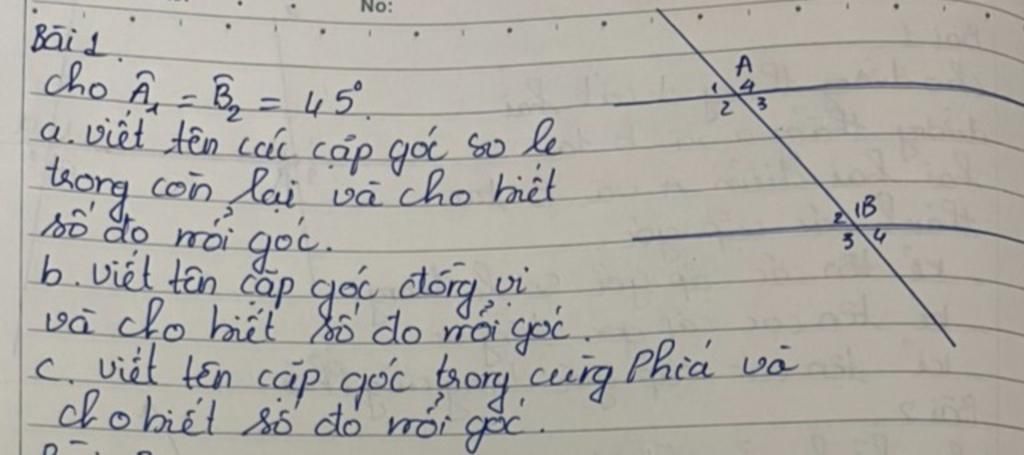 No:
Bài 1
Cho Â₁ = B̂₂ = 45°.
a. viết tên các cặp góc so le
trong còn lại và cho biết
số đo mỗi góc.
b. viết tên cặp góc đồng vị
và cho biết số đo mỗi góc.
c. viết tên cặp góc trong cùng Phía và
cho biết số đo mỗi góc.
A
1 4
2 3
2 1B
3 4